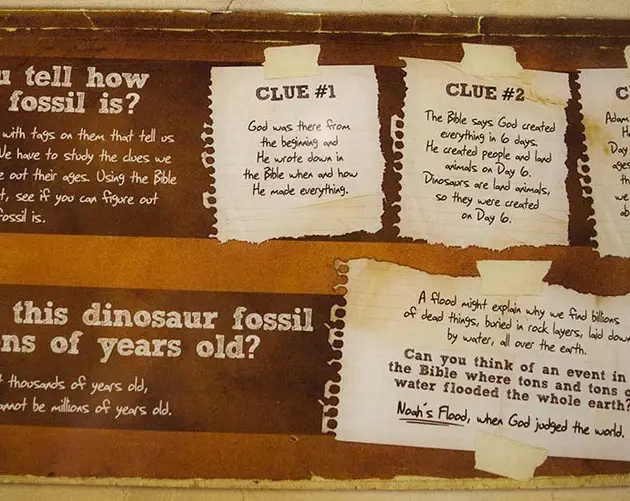 u tell how
fossil is?
with tags on them that tell us
We have to study the clues we
e out their ages. Using the Bible
t, see if you can figure out
fossil is.
CLUE #1
God was there from
the beginning and
He wrote down in
the Bible when and how
He made everything.
CLUE #2
The Bible says God created
everything in 6 days.
He created people and land
animals on Day 6.
Dinosaurs are land animals,
so they were created
on Day 6.
Adam
Day
ages
th
we
ab
this dinosaur fossil
ns of years old?
t thousands of years old,
annot be millions of years old.
A flood might explain why we find billions
of dead things, buried in rock layers, laid down
by water, all over the earth.
Can you think of an event in
the Bible where tons and tons o
water flooded the whole earth?
Noah's Flood, when God judged the world.